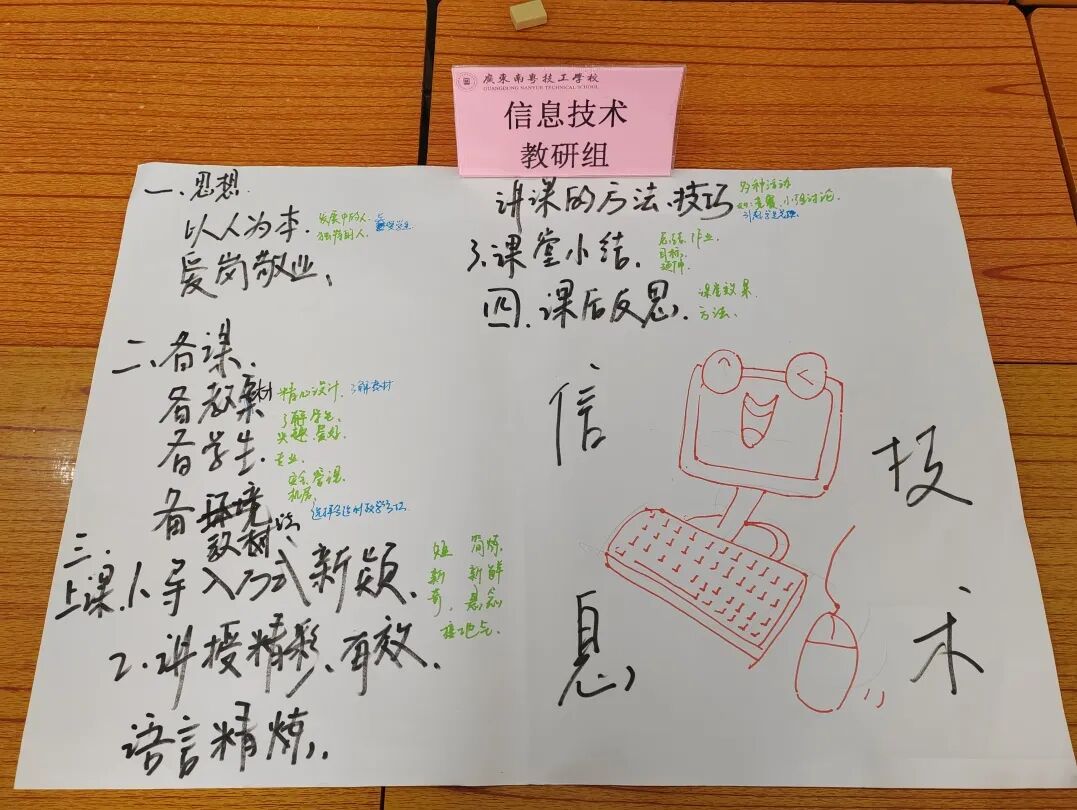 廣東南粤技工学校
GUANGDONG NANYUE TECHNICAL SCHOOL
信息技术
教研组
一、思想
以人为本. 发展中的人. 独特的人.
爱岗敬业、
二、备课、
备教案 精心设计. 了解教材
备学生. 了解学生、兴趣爱好.
专业.
备环境 安全管理. 机房.
教材、法
三、
上课. 1、导入方式新颖、
短 简炼.
新 新鲜
奇、悬念
接地气
2、讲授精彩、有效、
语言精炼、
讲课的方法、技巧 各种活动
如:竞赛、小组讨论.
3、课堂小结. 总结、作业.
目标、
延伸
四、课后反思、 课堂效果.
方法、
信息技术